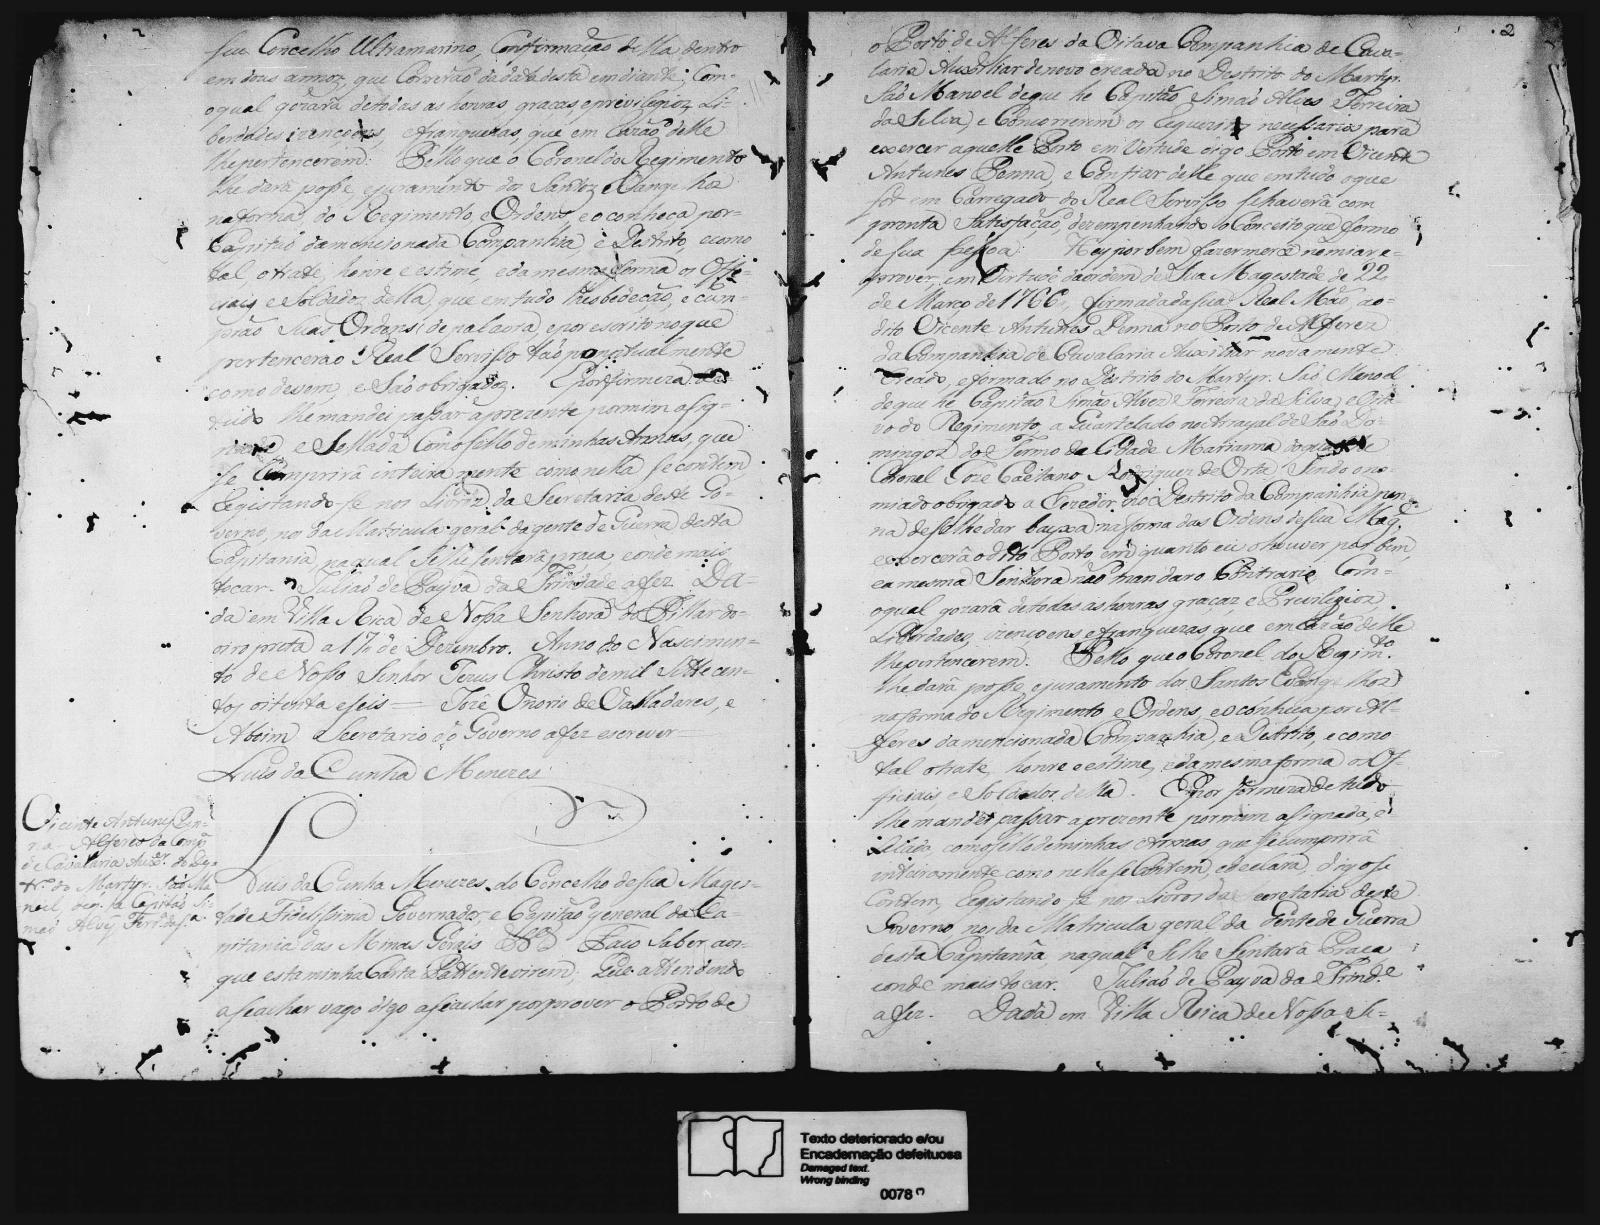 seu Concelho Ultramarino, Confirmação della dentro
em dous annos, que Correrão da data desta em diante; Com-
o qual gozará de todas as honras, graças e privilegios, Li-
berdades izençoens, e franquezas, que em razão delle
lhe pertencerem: Pello que o Coronel do Regimento
lhe dará posse e juramento dos Santos Evangelhos
na forma do Regimento, e Ordens, e o conheça por-
Capitão da mencionada Companhia, e Destrito, e como
tal, o trate, honre e estime, e da mesma forma os Offe-
ciais e Soldados della, que em tudo lhe obedeção, e cum-
prão suas Ordens de palavra, e por escrito no que
pertencer ao Real Servisso tão pontualmente
como devem, e são obrigados. E por firmeza de
tudo lhe mandei passar a prezente por mim asig-
nada e Sellada Com o sello de minhas Armas, que
se Cumprirá inteiramente como nella se contem
Registando-se nos Livros da Secretaria deste Go-
verno, nos da Matricula geral da gente de Guerra desta
Capitania, na qual se lhe sentará praça, e onde mais
tocar. Julião de Payva da Trindade a fez. Da-
da em Villa Rica de Nossa Senhora do Pillar do
oiro preto a 17 de Dezembro. Anno do Nascimen-
to de Nosso Senhor Jezus Christo de mil Sette cen-
tos oitenta e seis = Jozé Onorio de Valladares, e
Aboim Secretario do Governo a fez escrever =
Luis da Cunha Menezes
Vicente Antunes Pen-
na Alferes da Comp.ª
de Cavalaria Aux.ar do Des-
tr.º do Martyr. São Ma-
noel, de q. he Capitão Si-
mão Alves Ferr.ª da S.ª
Luis da Cunha Menezes do Concelho de Sua Mages-
tade Fidelissima Governador, e Capitão general da Ca-
pitania das Minas Gerais &&ª Faço Saber aos-
que esta minha Carta Pattente virem; Que attendendo
a se achar vago digo a se achar por prover o Posto de
2
o Posto de Alferes da Oitava Companhia de Cava-
laria Auxiliar de novo creada no Destrito do Martyr.
São Manoel de que he Capitão Simão Alves Ferreira
da Silva, e Concorrerem os requezitos necessarios para
exercer aquelle Posto em Vertude digo Posto em Vicente
Antunes Penna, e Confiar delle que em tudo o que
for em Carregado do Real Servisso se haverá com
pronta Satisfação, dezempenhando o Conceito que formo
de sua pessoa: Hey por bem fazer mercê nomiar e-
prover, em Virtude da ordem de Sua Magestade de 22
de Março de 1766, firmada da sua Real Mão, ao-
dito Vicente Antunes Penna no Posto de Alferez
da Companhia de Cavalaria Auxiliar novamente
Creado, e formado no Destrito do Martyr. São Manoel
de que he Capitão Simão Alves Ferreira da Silva, e Oita-
vo do Regimento, a Quartelado no Arrayal de São Do-
mingos do Termo da Cidade Marianna do que he
Coronel Jozé Caetano Rodriguez de Orta Sendo o no-
miado obrigado a rezedir no Destrito da Companhia pen-
na de se lhe dar baixa na forma das Ordens de sua Mag.e
exercerá o dito Posto em quanto eu o houver por bem,
e a mesma Senhora não mandar o Contrario Com-
o qual gozará de todas as honras graças e Previlegioz,
Liberdades, izençoens e franquezas que em razão delle
lhe pertencerem. Pello que o Coronel do Regim.to
lhe dará posse, e juramento dos Santos Evangelhos
na forma do Regimento e Ordens, e o conheça por Al-
feres da mencionada Companhia, e Destrito, e como
tal o trate, honre e estime, e da mesma forma os Of-
ficiais e Soldados della. E por firmeza de tudo
lhe mandei passar a prezente por mim asignada, e
Sellada com o sello de minhas Armas que se cumprirá
inteiramente como nella se Contem, e declara, digo se
Contem, Registando-se nos Livros da Secretaria deste
Governo nos da Matricula geral da Gente de Guerra
desta Capitania, na qual se lhe Sentará Praça
e onde mais tocar. Julião de Payva da Trind.e
a fez. Dada em Villa Rica de Nossa Se-
Texto deteriorado e/ou
Encadernação defeituosa
Damaged text.
Wrong binding
0078